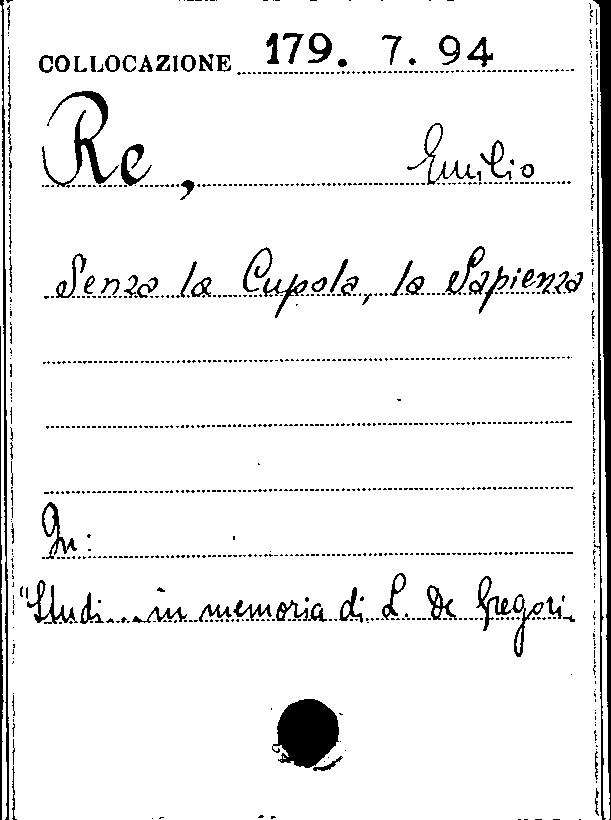 COLLOCAZIONE 179. 7. 94
Re, Emilio
Senza la Cupola, la Sapienza
In:
"Studi... in memoria di L. De Gregori.